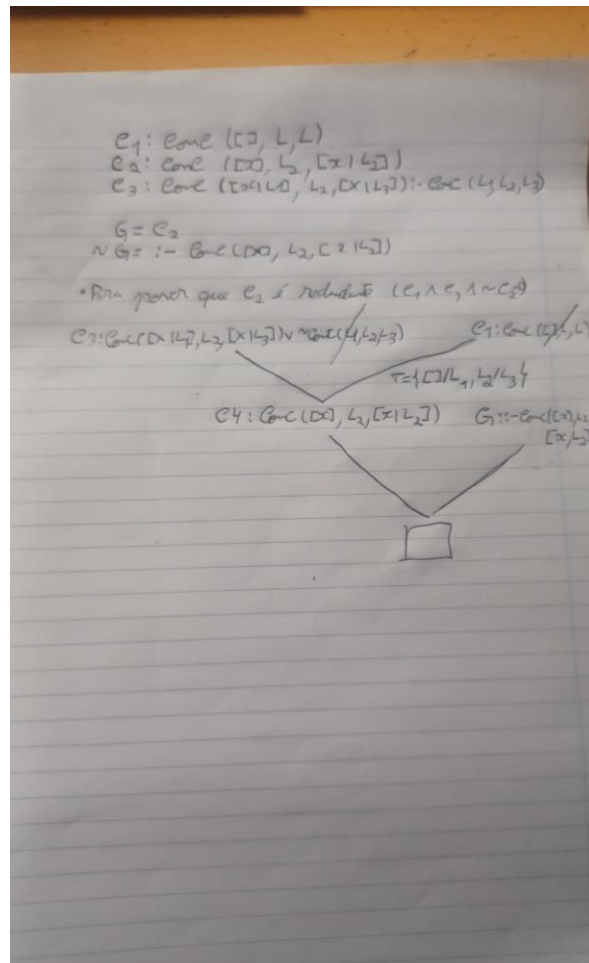 C1: Conc ([], L, L)
C2: Conc ([X], L2, [X|L2])
C3: Conc ([X|L1], L2, [X|L3]):- Conc (L1,L2,L3)
G = C2
~G = :- Conc([X], L2, [X|L2])
• Para provar que C2 é redudante (C1 ∧ C3 ∧ ~C2)
C3: Conc([X|L1], L2, [X|L3]) ∨ ~Conc(L1,L2,L3) C1: Conc ([], L, L)
T={[]/L1, L2/L3}
C4: Conc ([X], L2, [X|L2]) G: :- Conc([X], L2
[X,L2]